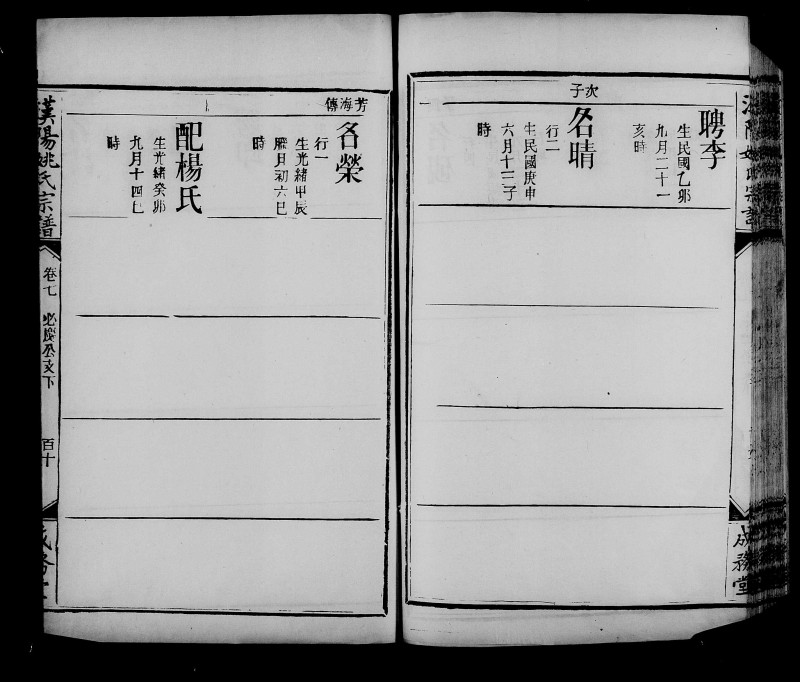 聘李
生民國乙卯
九月二十一
亥時
次子
名晴
行二
生民國庚申
六月十三子
時
成務堂
芳海傳
名榮
行一
生光緒甲辰
臘月初六巳
時
配楊氏
生光緒癸卯
九月十四巳
時
漢陽姚氏宗譜
卷七
百十
成務堂